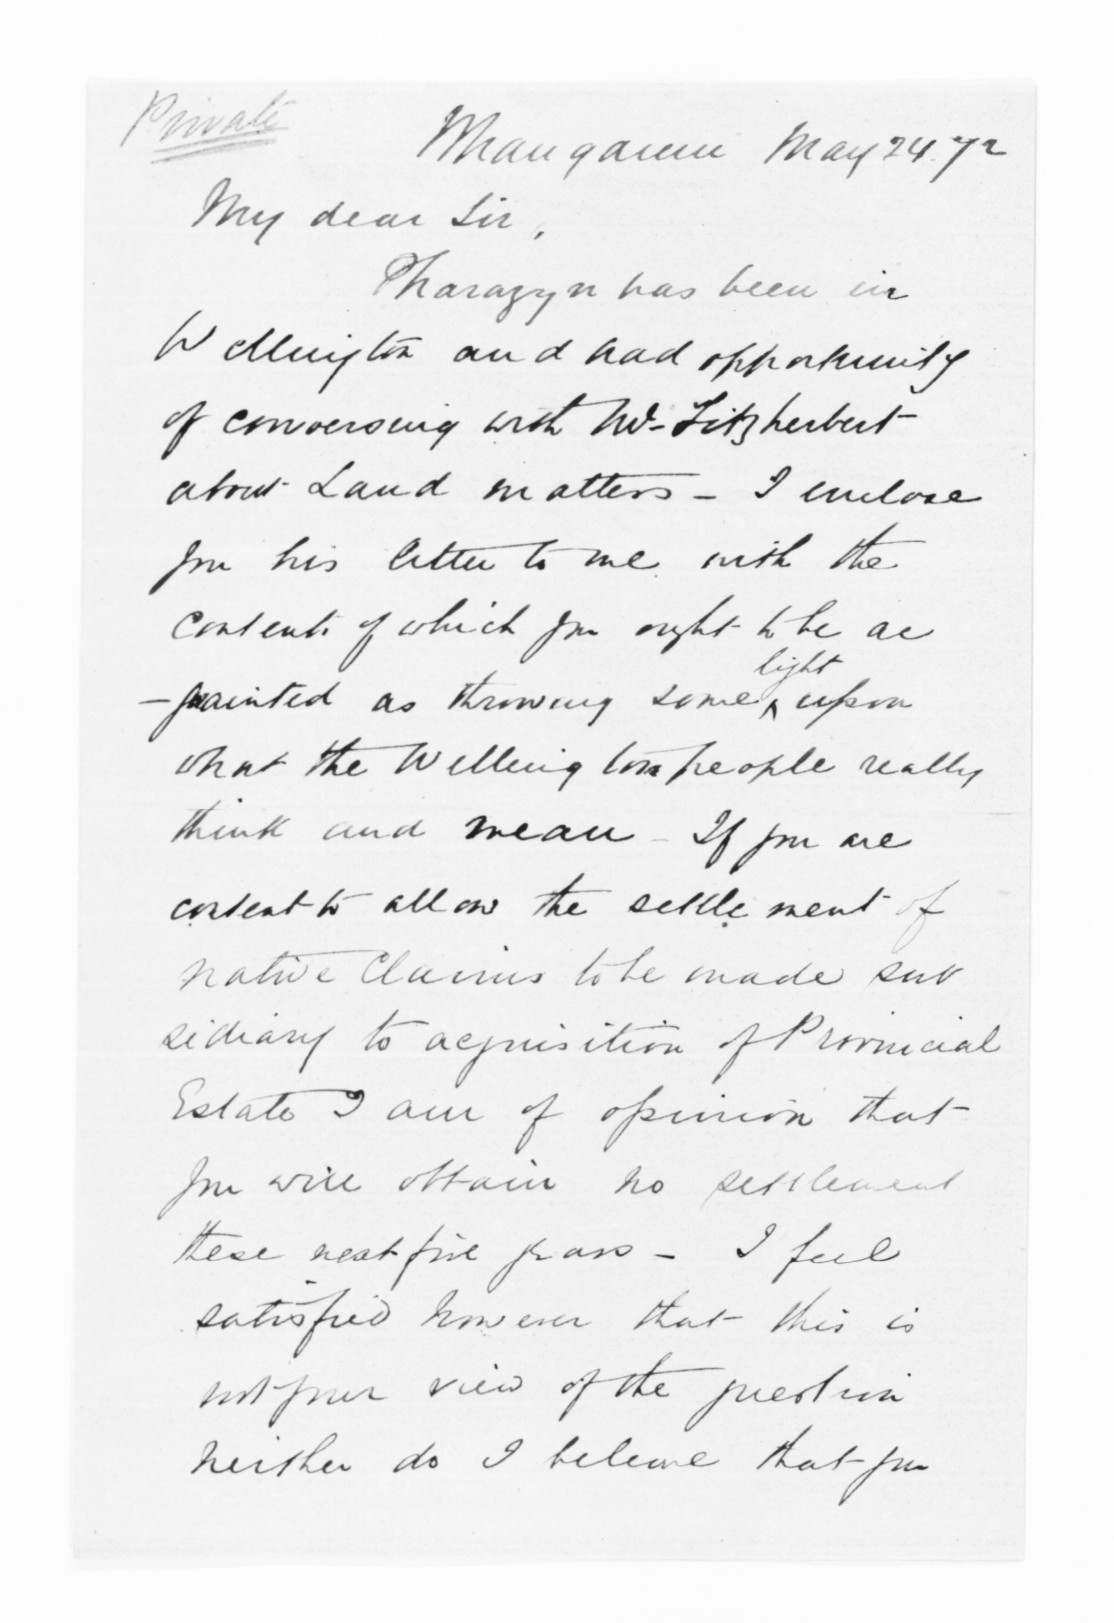 Private
Whanganui May 24. 72
My dear Sir,
Pharazyn has been in
Wellington and had opportunity
of conversing with Mr Fitzherbert
about Land matters – I enclose
you his letter to me with the
contents of which you ought to be ac
light
–quainted as throwing some upon
what the Wellington people really
think and mean – If you are
content to allow the settlement of
native Claims to be made sub
sidiary to acquisition of Provincial
Estate I am of opinion that
you will obtain no settlement
these next five years – I feel
satisfied however that this is
not your view of the question
neither do I believe that you